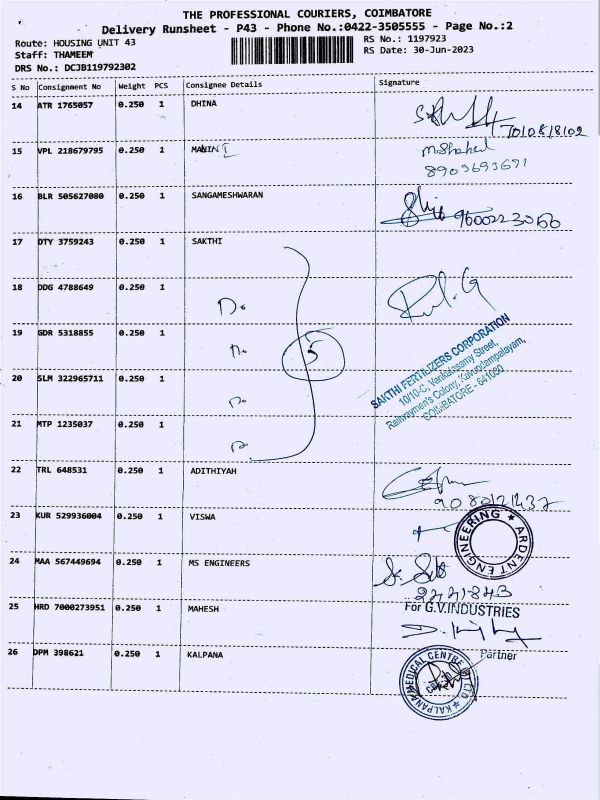 THE PROFESSIONAL COURIERS, COIMBATORE
Delivery Runsheet - P43 - Phone No.:0422-3505555 - Page No.:2
Route: HOUSING UNIT 43 RS No.: 1197923
Staff: THAMEEM RS Date: 30-Jun-2023
DRS No.: DCJB119792302
S No Consignment No Weight PCS Consignee Details Signature
14 ATR 1765057 0.250 1 DHINA
15 VPL 218679795 0.250 1 M.Shahul
8903693691
16 BLR 505627080 0.250 1 SANGAMESHWARAN 9600223066
17 DTY 3759243 0.250 1 SAKTHI
18 DDG 4788649 0.250 1 Do
19 GDR 5318855 0.250 1 5
20 SLM 322965711 0.250 1
21 MTP 1235037 0.250 1
SAKTHI FERTILIZERS CORPORATION
10/10-C, Venkidasamy Street,
Railwaymen's Colony, Kavundampalayam,
COIMBATORE - 641030
22 TRL 648531 0.250 1 ADITHIYAH
23 KUR 529936004 0.250 1 VISWA
ARDENT ENGINEERING
24 MAA 567449694 0.250 1 MS ENGINEERS
2441843
25 HRD 7000273951 0.250 1 MAHESH For G.V.INDUSTRIES
Partner
26 DPM 398621 0.250 1 KALPANA
KALPANA MEDICAL CENTRE